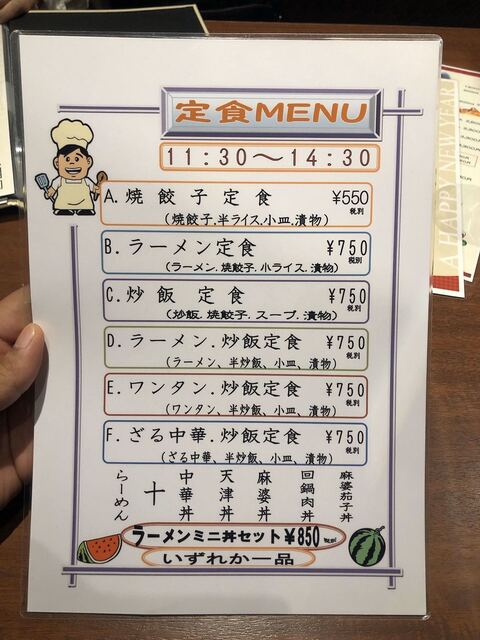 定食MENU
11:30～14:30
A.焼餃子定食 ¥550
税別
(焼餃子.半ライス.小皿.漬物)
B.ラーメン定食 ¥750
税別
(ラーメン.焼餃子.小ライス.漬物)
C.炒飯定食 ¥750
税別
(炒飯.焼餃子.スープ.漬物)
D.ラーメン.炒飯定食 ¥750
税別
(ラーメン、半炒飯、小皿、漬物)
E.ワンタン.炒飯定食 ¥750
税別
(ワンタン、半炒飯、小皿、漬物)
F.ざる中華.炒飯定食 ¥750
税別
(ざる中華、半炒飯、小皿、漬物)
らーめん
十
中華丼
天津丼
麻婆丼
回鍋肉丼
麻婆茄子丼
ラーメンミニ丼セット¥850 税別
いずれか一品
A HAPPY NEW YEAR